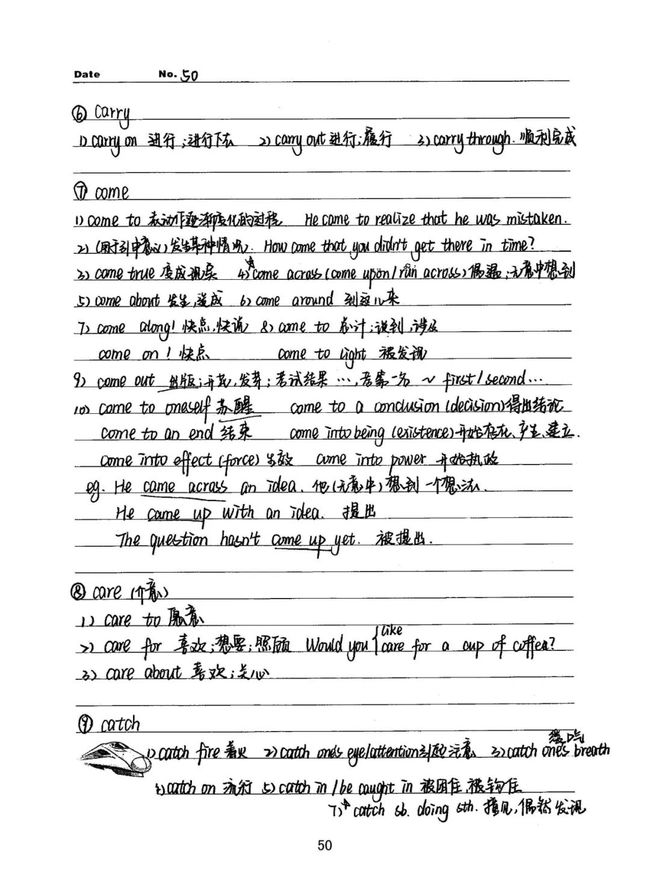 Date No. 50
⑥ carry
1) carry on 进行;进行下去 2) carry out 进行;履行 3) carry through. 顺利完成
⑦ come
1) come to 表动作逐渐变化的过程 He came to realize that he was mistaken.
2) (用于引申意义)发生某种情况. How come that you didn't get there in time?
3) come true 变成现实 4)* come across (come upon/run across) 偶遇;无意中想到
5) come about 发生,造成 6) come around 到这儿来
7) come along! 快点,快请 8) come to 总计;谈到,涉及
come on! 快点 come to light 被发现
9) come out 出版;开花,发芽;考试结果…,若第一名 ~ first/second…
10) come to oneself 苏醒 come to a conclusion (decision) 得出结论
come to an end 结束 come into being (existence) 开始存在、产生、建立.
come into effect (force) 生效 come into power 开始执政
eg. He came across an idea. 他(无意中)想到一个想法.
He came up with an idea. 提出
The question hasn't come up yet. 被提出.
⑧ care (介意)
1) care to 愿意
2) care for 喜欢;想要;照顾 Would you {like care for a cup of coffee?
3) care about 喜欢;关心
⑨ catch
1) catch fire 着火 2) catch one's eye/attention 引起注意 3) catch one's breath 
4) catch on 流行 5) catch in / be caught in 被困住,被钩住
7)* catch sb. doing sth. 撞见,偶然发现
50